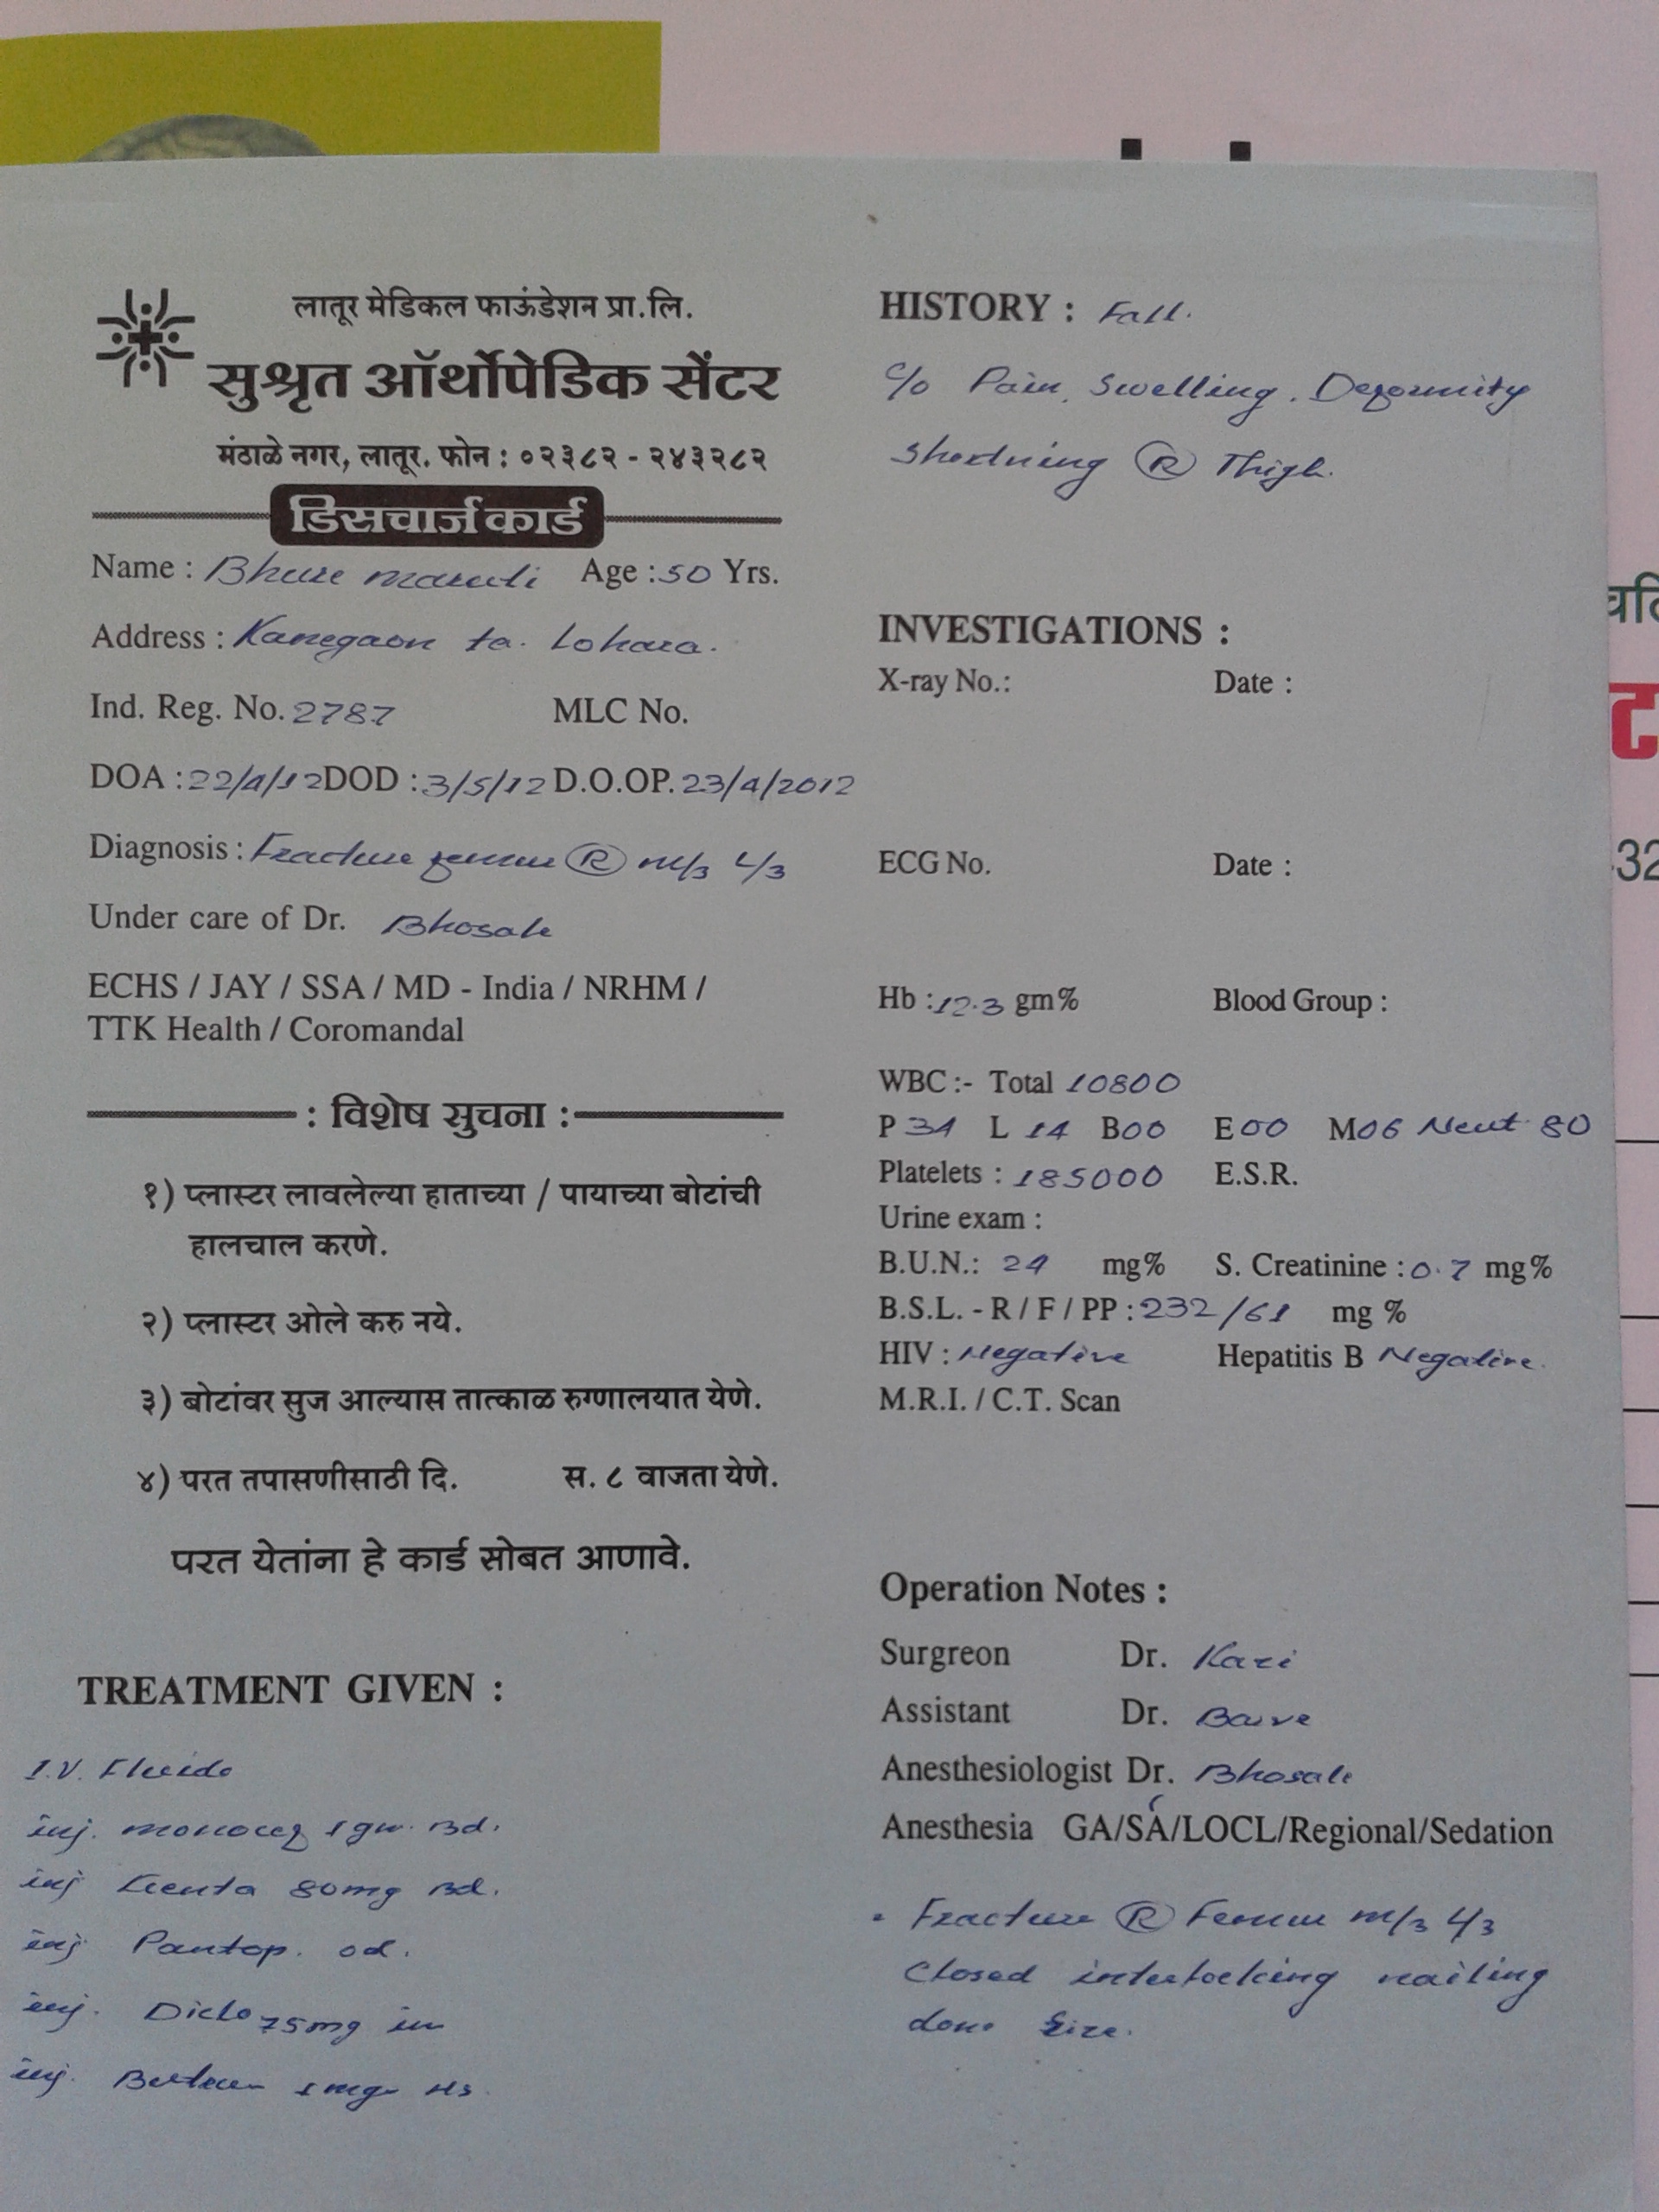 लातूर मेडिकल फाऊंडेशन प्रा.लि.
सुश्रृत ऑर्थोपेडिक सेंटर
मंठाळे नगर, लातूर. फोन : ०२३८२ - २४३२८२
डिसचार्ज कार्ड
Name : Bhure maruti Age : 50 Yrs.
Address : Kanegaon ta. Lohara.
Ind. Reg. No. 2787 MLC No.
DOA : 22/4/12 DOD : 3/5/12 D.O.OP. 23/4/2012
Diagnosis : Fracture femur Ⓡ m/3 L/3
Under care of Dr. Bhosale
ECHS / JAY / SSA / MD - India / NRHM /
TTK Health / Coromandal
: विशेष सुचना :
१) प्लास्टर लावलेल्या हाताच्या / पायाच्या बोटांची
हालचाल करणे.
२) प्लास्टर ओले करु नये.
३) बोटांवर सुज आल्यास तात्काळ रुग्णालयात येणे.
४) परत तपासणीसाठी दि. स. ८ वाजता येणे.
परत येतांना हे कार्ड सोबत आणावे.
TREATMENT GIVEN :
I.V. Fluids
inj. monocef 1gm. Bd.
inj Genta 80mg Bd.
inj Pantop. od.
inj. Diclo 75mg im
inj. 1mg Hs.
HISTORY : Fall.
c/o Pain, Swelling. Deformity
Shortning Ⓡ Thigh.
INVESTIGATIONS :
X-ray No.: Date :
ECG No. Date :
Hb : 12.3 gm% Blood Group :
WBC :- Total 10800
P 34 L 14 B 00 E 00 M 06 Neut 80
Platelets : 185000 E.S.R.
Urine exam :
B.U.N.: 24 mg% S. Creatinine : 0.7 mg%
B.S.L. - R / F / PP : 232 / 61 mg %
HIV : Negative Hepatitis B Negative.
M.R.I. / C.T. Scan
Operation Notes :
Surgreon Dr. Kazi
Assistant Dr.
Anesthesiologist Dr. Bhosale
Anesthesia GA/SA/LOCL/Regional/Sedation
Fracture Ⓡ Femur m/3 L/3
Closed interlocking nailing
done Size.
ट
32